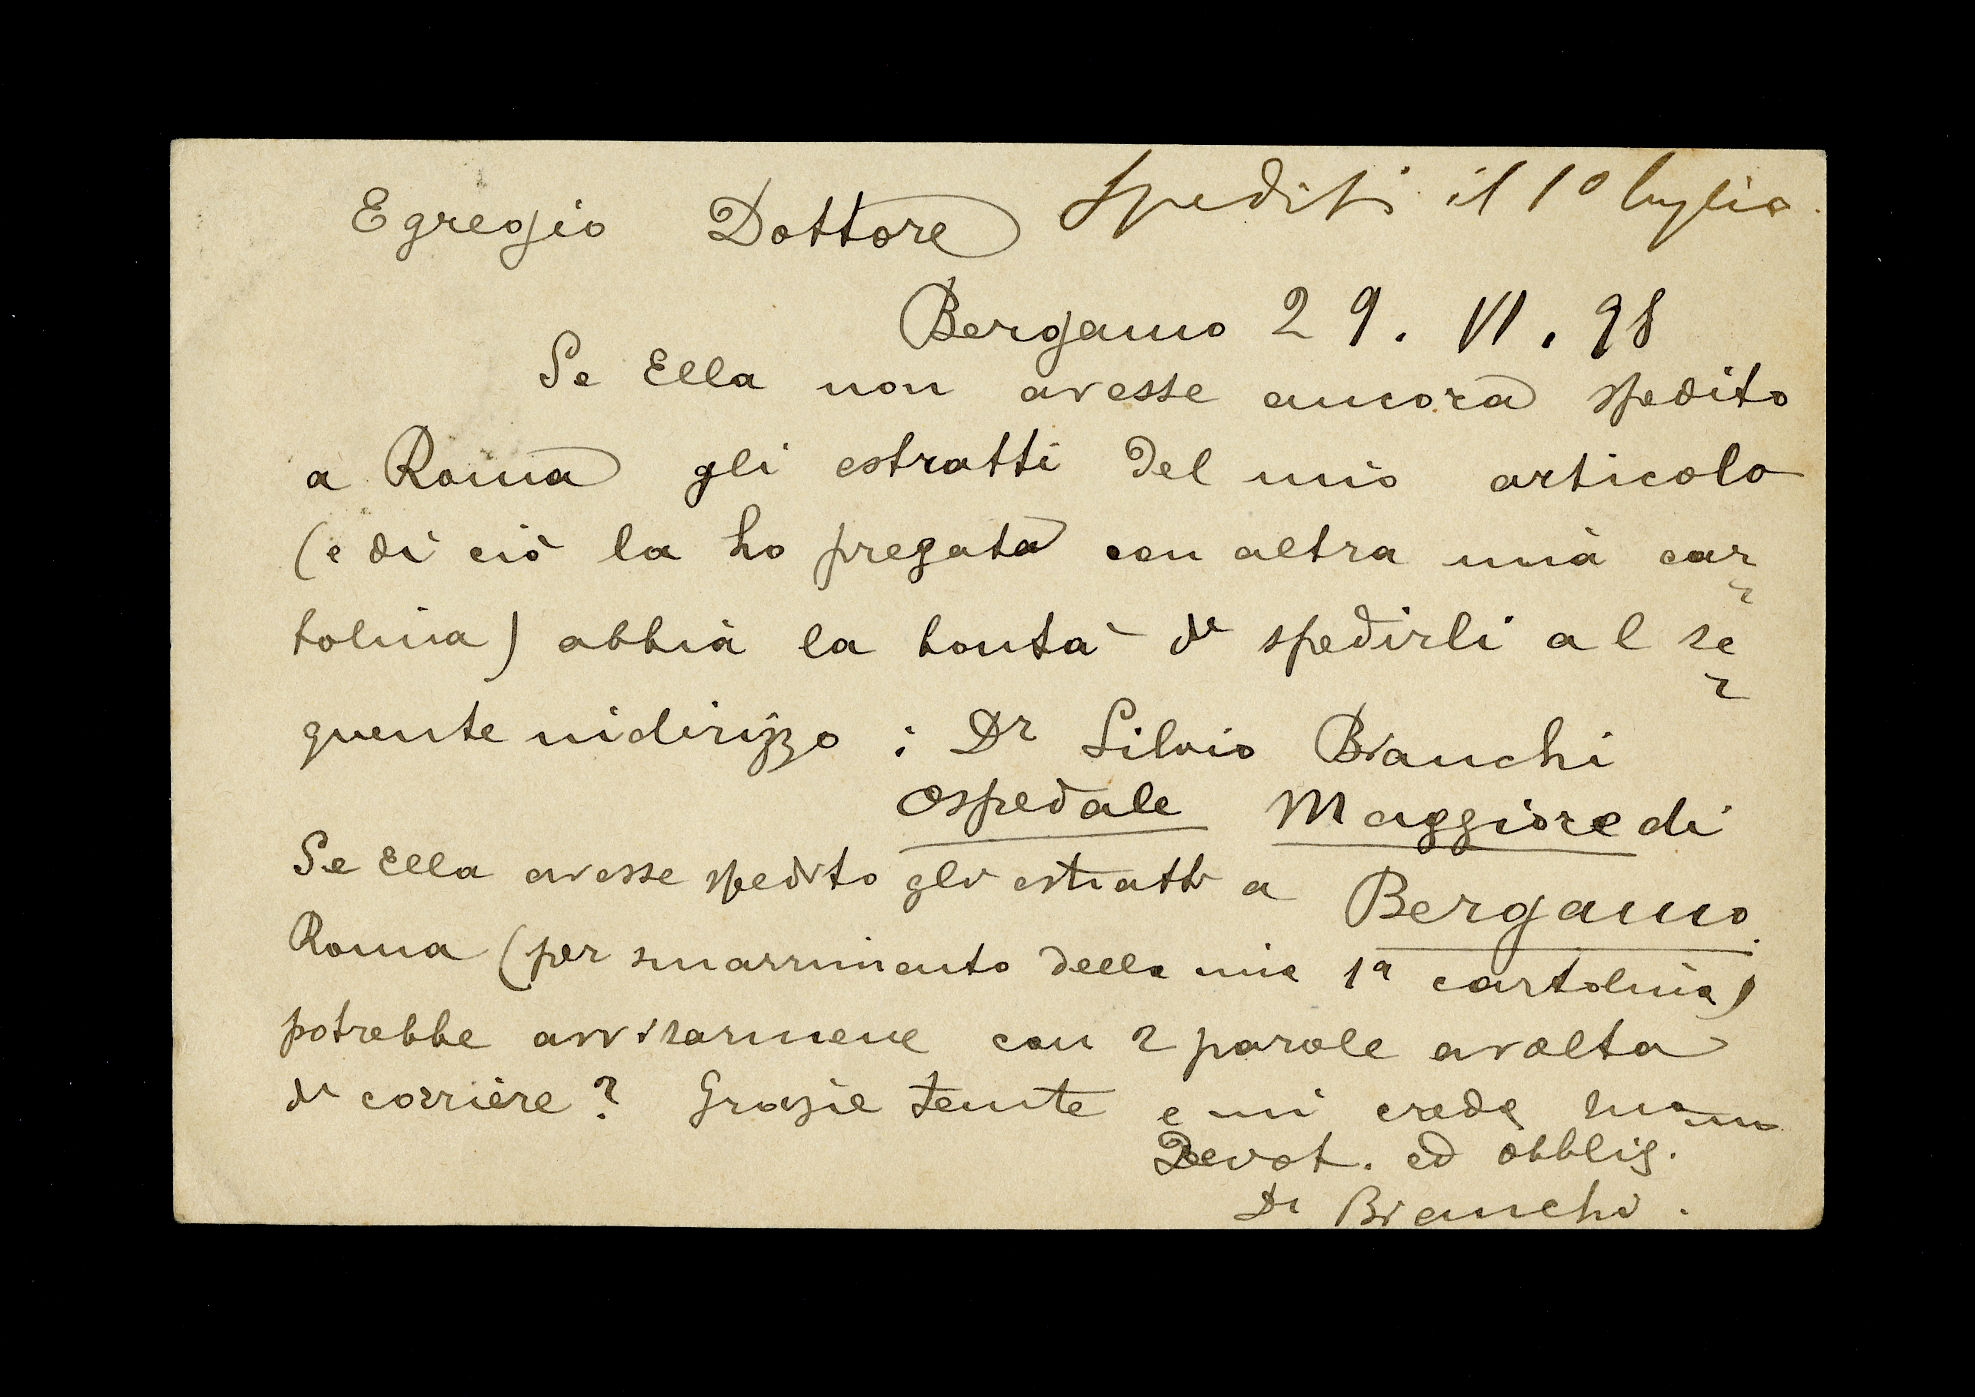 Spediti il 1° luglio.
Egregio Dottore
Bergamo 29. VI. 98
Se Ella non avesse ancora spedito
a Roma gli estratti del mio articolo
(e di ciò la ho pregata con altra mia car-
tolina) abbia la bontà di spedirli al se-
guente indirizzo : Dr Silvio Bianchi
Ospedale Maggiore di
Bergamo.
Se Ella avesse spedito gli estratti a
Roma (per smarrimento della mia 1a cartolina)
potrebbe avvisarmene con 2 parole a volta
di corriere? Grazie tante e mi creda suo
Devot. ed obblig.
Dr Bianchi.